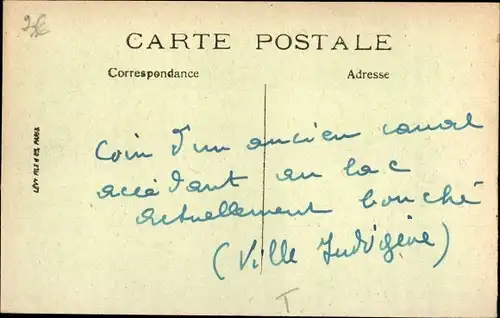 3€
CARTE POSTALE
Correspondance
Adresse
LÉVY FILS & Cie, PARIS
Coin d'un ancien canal
accédant au lac
actuellement bouché
(Ville Indigène)
T